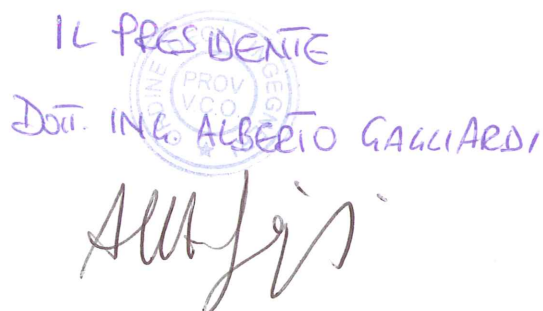 IL PRESIDENTE
PROV
VCO
DOTT. ING. ALBERTO GAGLIARDI